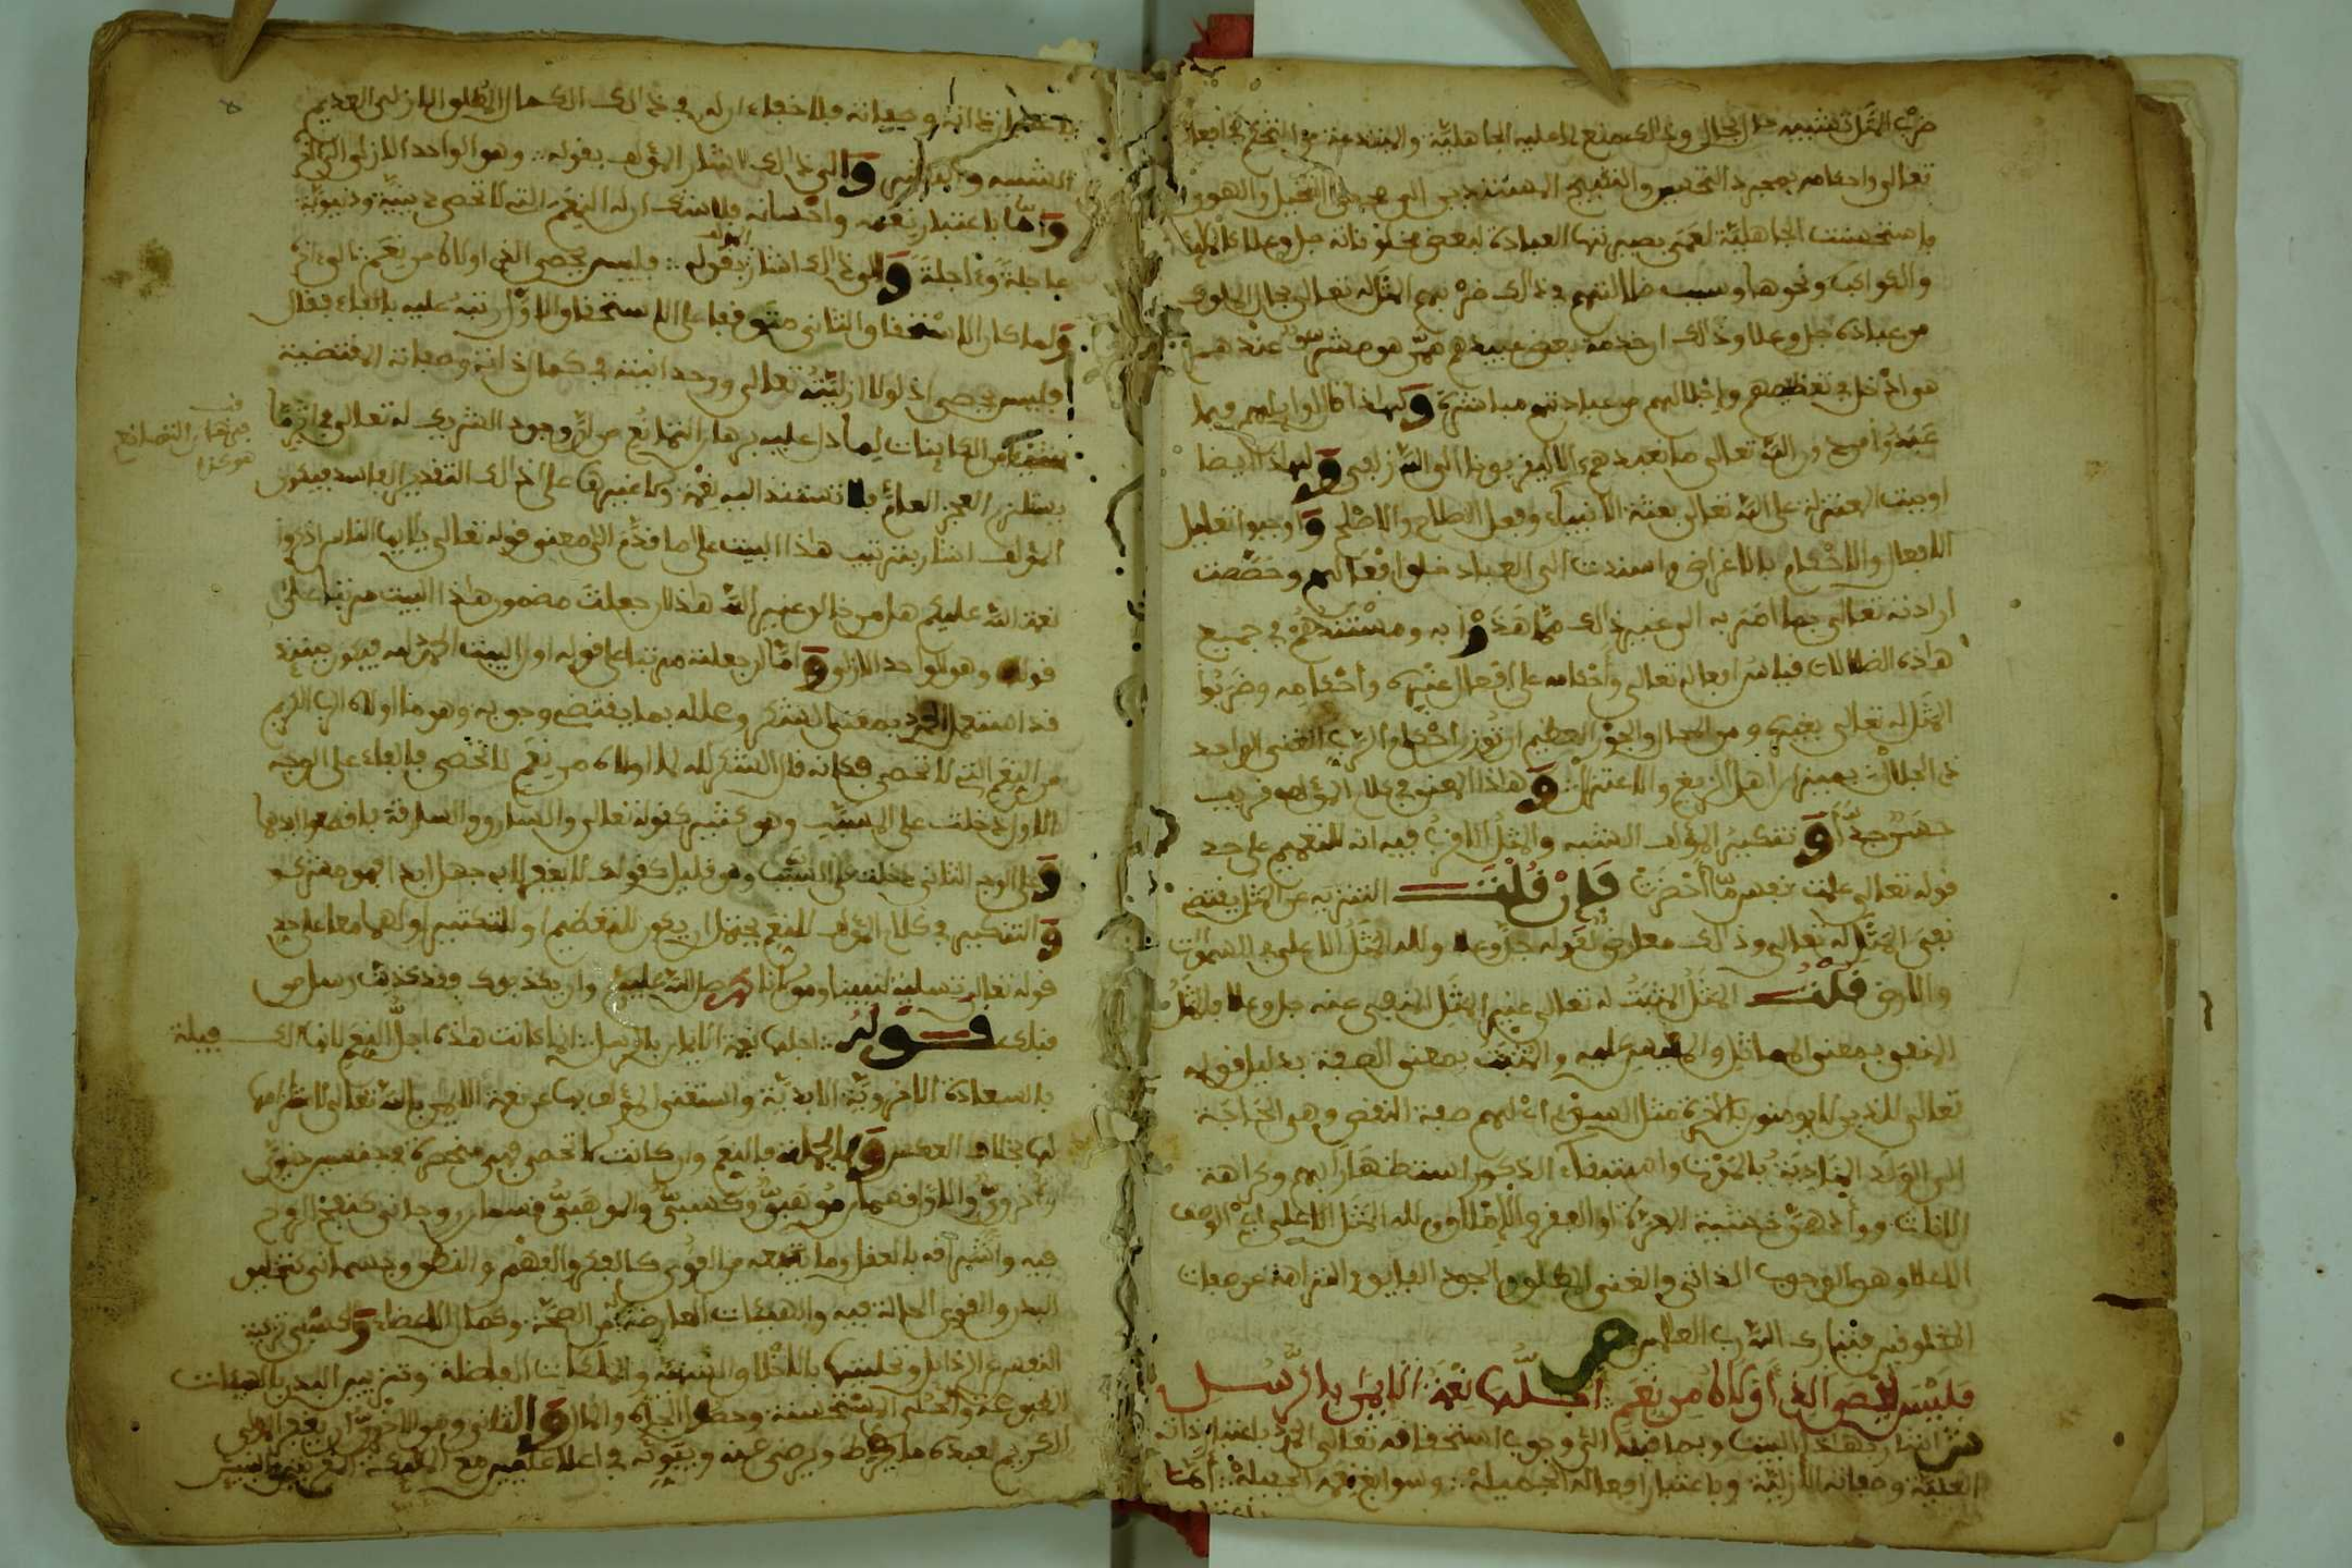 ضرب المثل تشبيه حال بحال وذلك ممنع لما عليه الجاهلية والمبتدعة من التحكم في افعاله
تعالى واحكامه بمجرد التحسين والتقبيح المستندين الى مجرد التخيل والهوى
فاستحسنت الجاهلية لعمى بصيرتها العبادة لبعض مخلوقاته جل وعلا كالملائكة
والكواكب ونحوها وسبب ضلالتهم في ذلك ضربهم المثل له تعالى بحال الملوك
من عباده جل وعلا وذلك ان خدمة بعض عبيدهم ممن هو مشرف عندهم
هو ادخل في تعظيمهم واجلالهم من عبادتهم مباشرة ولهذا قالوا فيما
عبدوا من دون الله تعالى ما نعبدهم الا ليقربونا الى الله زلفى ولهذا ايضا
اوجبت المعتزلة على الله تعالى بعثة الانبياء وفعل الصلاح والاصلح واوجبوا تعليل
الافعال والاحكام بالاغراض واسندت الى العباد خلق افعالهم وخصصت
ارادته تعالى بما امر به الى غير ذلك مما هذوا به ومستندهم في جميع
هذه الضلالات قياس افعاله تعالى واحكامه على افعال غيره واحكامه وضربوا
المثل له تعالى بغيره ومن المحال والجور العظيم ان توزن احكام الرب الغنى الواحد
ذى الجلال بميزان اهل الزيغ والاعتزال وهذا المعنى في كلام المؤلف قريب
حسن جدا وتنكير المؤلف الشبه والمثل الاقرب فيه انه للتعميم على حد
قوله تعالى علمت نفس ما احضرت فان قلت التنزيه عن المثل يقتضى
نفى المثل له تعالى وذلك معارض لقوله جل وعلا ولله المثل الاعلى في السموت
والارض قلت المثل المثبت له تعالى غير المثل المنفى عنه جل وعلا فالمثل
المنفى بمعنى المماثل والمقيس عليه والمثبت بمعنى الصفة بدليل قوله
تعالى للذين لا يومنون بالاخرة مثل السوء اى لهم صفة النقص وهى الحاجة
الى الولد المنادية بالموت واستبقاء الذكور استظهارا بهم وكراهة
الاناث ووأدهن خشية المعرة او الفقر والاملاق ولله المثل الاعلى اى الوصف
الاعلا وهو الوجوب الذاتى والغنى المطلق والجود الفايق والنزاهة عن صفات
المخلوقين فتبارك الله رب العالمين ص
فليس يحصى الذى اولاه من نعم اجلها نعمة الايمان بالرسل
ش اشار بهذا البيت وبما قبله الى وجوب استحقاقه تعالى الحمد باعتبار ذاته
العلية وصفاته الازلية وباعتبار افعاله الجميلة وسوابغ نعمه الجليلة اما
باعتبار
باعتبار ذاته وصفاته فلا خفاء ان له في ذلك الكمال المطلق الازلى العديم
الشبيه والى ذلك اشار المؤلف بقوله وهو الواحد الازلى
واما باعتبار نعمه واحسانه فلا شك ان له النعم التى لا تحصى دينية ودنيوية
عاجلة وءاجلة والى ذلك اشار المؤلف بقوله فليس يحصى الذى اولاه من نعم
ولما كان الاستحقاق الثانى متوقفا على الاستحقاق الاول رتبه عليه بالفاء فقال
فليس يحصى اذ لولا ازليته تعالى ووحدانيته في كمال ذاته وصفاته المقتضية
الكاينات لما دل عليه برهان التمانع من ان وجود الشريك له تعالى
يستلزم العجز العام فلا تستند اليه نعمة ولا غيرها على ذلك التقدير الفاسد فيكون
المؤلف اشار بترتيب هذا البيت على ما قدم الى معنى قوله تعالى يا ايها الناس اذكروا
نعمة الله عليكم هل من خالق غير الله هذا ان جعلت مضمون هذا البيت مرتبا على
قوله وهو الواحد الازلى واما ان جعلته مرتبا على قوله اول البيت الحمد لله فيكون حينئذ
قد استعمل الحمد بمعنى الشكر وعلله بما يقتضى وجوبه وهو ما اولاه الرب الكريم
من النعم التى لا تحصى فكانه قال الشكر لله لما اولاه من نعم لا تحصى فالفاء على الوجه
الاول دخلت على المسبب وهو كثير كقوله تعالى والسارق والسارقة فاقطعوا ايديهما
وعلى الوجه الثانى دخلت على السبب وهو قليل
والتنكير في كلام المؤلف للنعم يحتمل ان يكون للتعظيم او للتكثير اولهما معا على حد
قوله تعالى تسلية لنبينا ومولانا محمد صلى الله عليه وان يكذبوك فقد كذبت رسل من
قبلك قوله اجلها نعمة الايمان بالرسل انما كانت هذه اجل النعم
بالسعادة الاخروية الابدية واستغنى المؤلف بها عن نعمة الايمان بالله تعالى
لها بخلاف العكس وبالجملة فالنعم وان كانت لا تحصى فهى منحصرة في قسمين دنيوى
واخروى والاول قسمان موهبى وكسبى والموهبى قسمان روحانى كنفخ الروح
فيه واشراقه بالعقل وما يتبعه من القوى كالفكر والفهم والنطق وجسمانى كتخليق
البدن والقوى الحالة فيه والهيئات العارضة من الصحة وكمال الاعضاء والكسبى تزكية
النفس عن الرذايل وتحليتها بالاخلاق السنية والملكات الفاضلة وتزيين البدن بالهيئات
المطبوعة والحلى المستحسنة وحصول الجاه والمال والثانى وهو الاخروى ان يغفر المولى
الكريم لعبده ما فرط ويرضى عنه ويبوئه في اعلا عليين مع الملائكة المقربين
قف
برهان التمانع
هو هذا